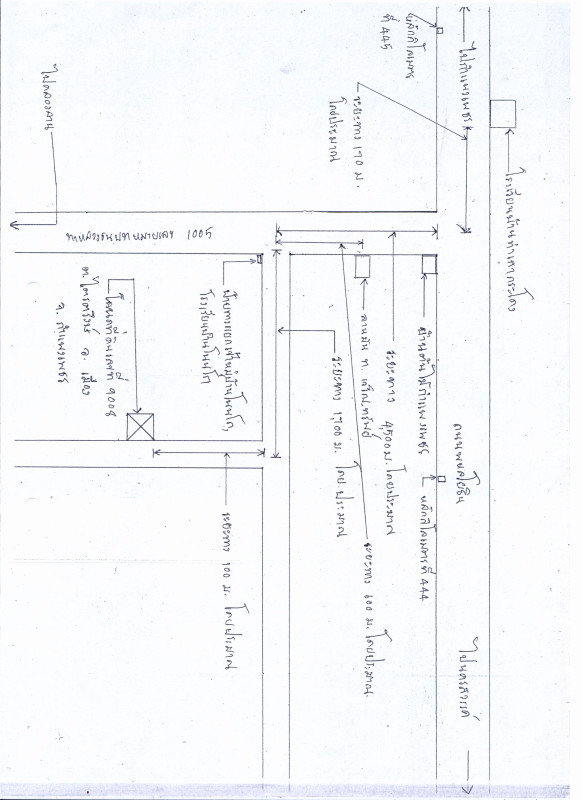 ไปกำแพงเพชร
โรงเรียนบ้านท่าเสากระโดง
หลักกิโลเมตร
ที่ 445
ระยะทาง 170 ม.
โดยประมาณ
ถนนพหลโยธิน
ไปนครสวรรค์
ไปคลองลาน
ทางหลวงชนบท หมายเลข 1005
บ้านต้นไม้กำแพงเพชร
หลักกิโลเมตรที่ 444
ระยะทาง 4,500 ม. โดยประมาณ
ลานมัน ท. เจริญทรัพย์
ระยะทาง 600 ม. โดยประมาณ
ระยะทาง 1,700 ม. โดยประมาณ
ป้ายทางแยกเข้าหมู่บ้านโนนโก,
โรงเรียนบ้านโนนโก
โฉนดที่ดินเลขที่
ต.ไตรตรึงษ์ อ. เมือง
จ. กำแพงเพชร
ระยะทาง 100 ม. โดยประมาณ